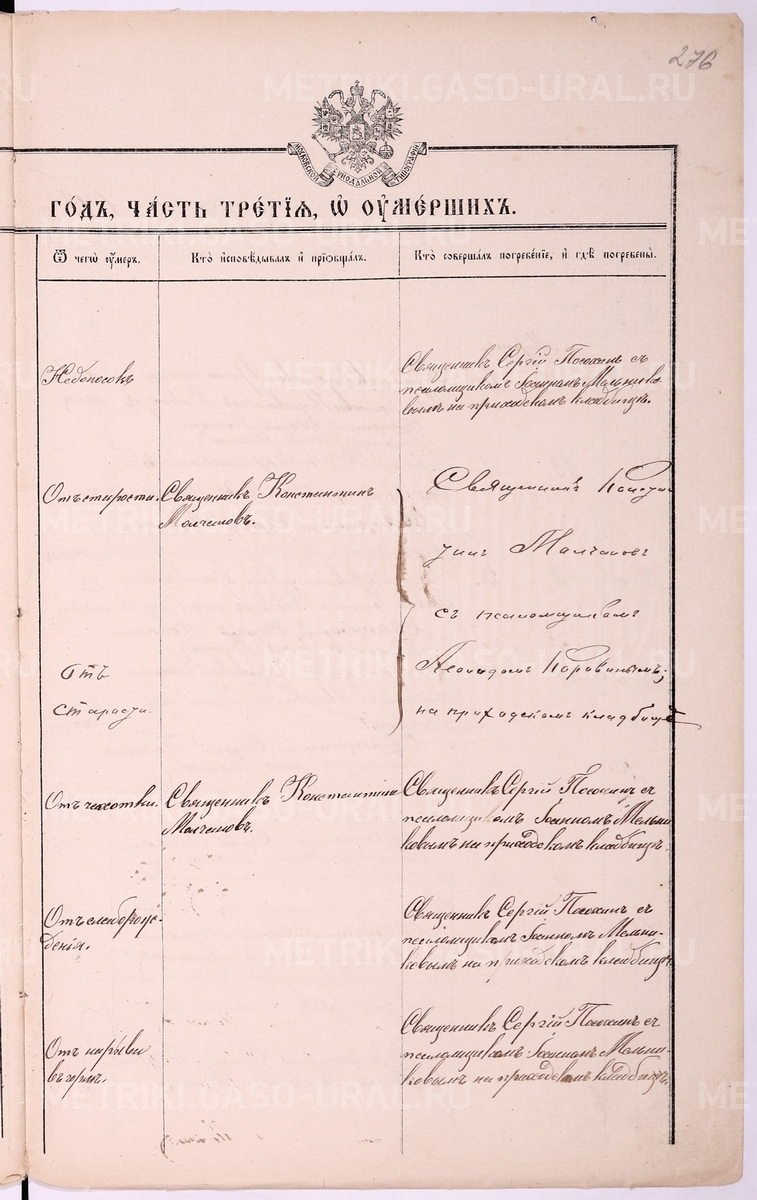 276
METRIKI.GASO-URAL.RU
МОСКОВСКОЙ СѴНОДАЛЬНОЙ ТИПОГРАФІИ
ГО́ДЪ, ЧА́СТЬ ТРЕ́ТІѦ, Ѡ҆ ОУ҆МЕ́РШИХЪ.
Ѿ чегѡ̀ оу҆́меръ.
Кто̀ и҆сповѣ́дывалъ и҆ прїѡбща́лъ.
Кто̀ соверша́лъ погребе́нїе, и҆ гдѣ̀ погребены̀.
Недоносокъ
Священникъ Сергій съ
псаломщикомъ Іоанномъ Мельнико
вымъ на приходскомъ кладбищѣ.
Отъ старости.
Священникъ Константинъ
Молчановъ.
Священникъ Констан
тинъ Молчановъ
съ псаломщикомъ
Леонидомъ Коровинымъ,
на приходскомъ кладбищѣ
Отъ
старости.
Отъ чахотки.
Священникъ Константинъ
Молчановъ.
Священникъ Сергій съ
псаломщикомъ Іоанномъ Мельни
ковымъ на приходскомъ кладбищѣ.
Отъ слаборож-
денія.
Священникъ Сергій съ
псаломщикомъ Іоанномъ Мельни-
ковымъ на приходскомъ кладбищѣ.
Отъ нарыва
въ горлѣ.
Священникъ Сергій съ
псаломщикомъ Іоанномъ Мельни-
ковымъ на приходскомъ кладбищѣ.